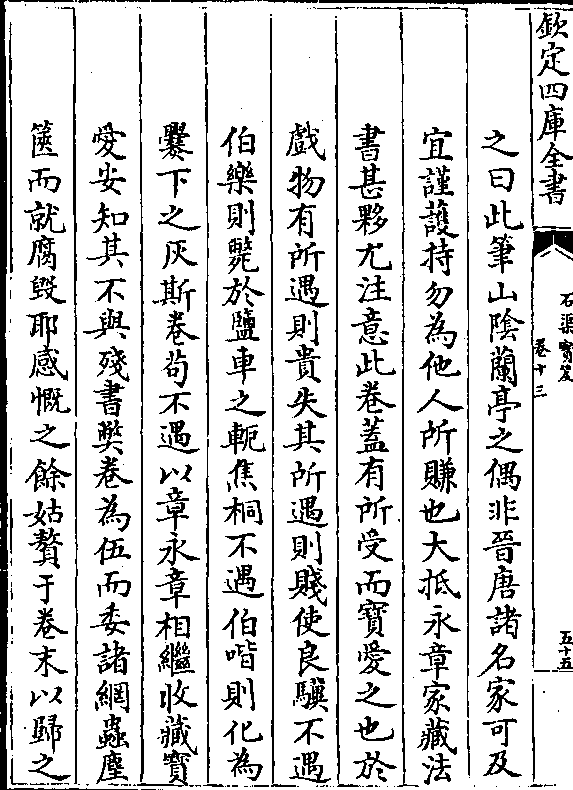 欽定四庫全書
石渠寳笈
卷十三
五十五
之曰此筆山陰蘭亭之偶非晉唐諸名家可及
宜謹護持勿為他人所賺也大抵永章家藏法
書甚夥尤注意此卷蓋有所受而寶愛之也於
戲物有所遇則貴失其所遇則賤使良驥不遇
伯樂則斃於鹽車之軛焦桐不遇伯喈則化為
爨下之灰斯卷苟不遇以章永章相繼收藏寳
愛安知其不與殘書獘卷為伍而委諸網蟲塵
篋而就腐毀耶感慨之餘姑贅于卷末以歸之